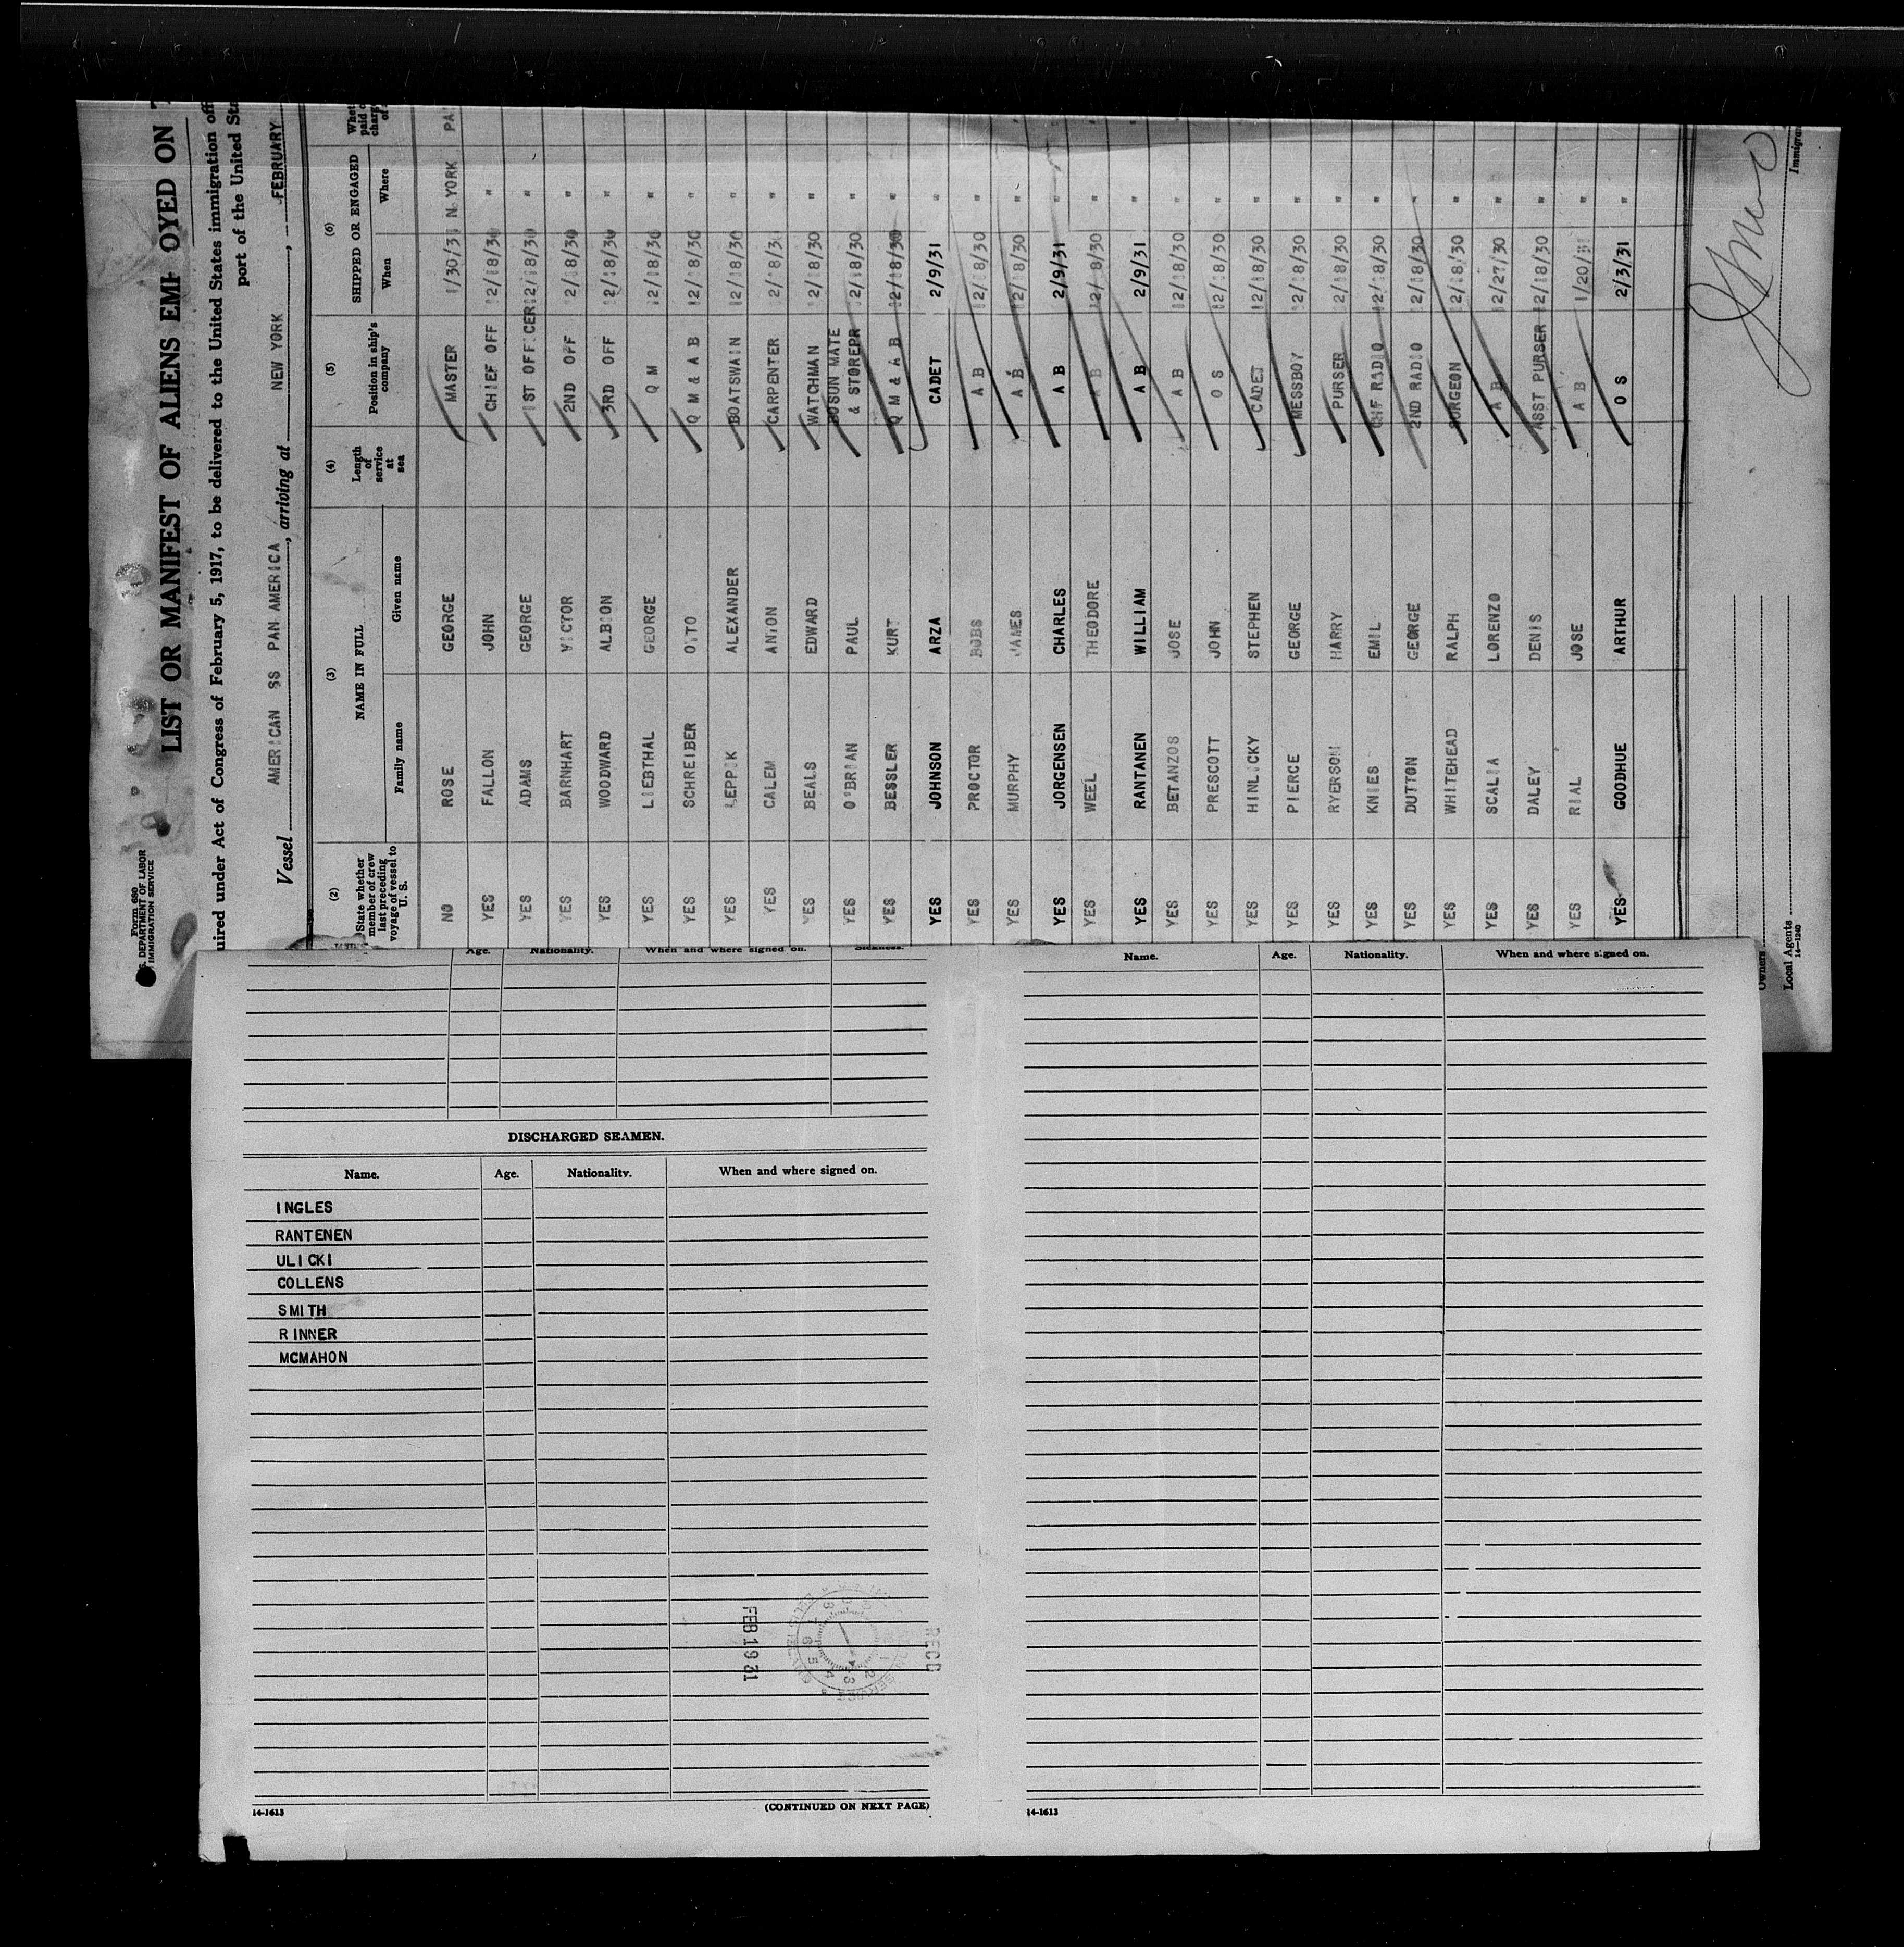 Form 680
DEPARTMENT OF LABOR
IMMIGRATION SERVICE
LIST OR MANIFEST OF ALIENS EMPLOYED ON
uired under Act of Congress of February 5, 1917, to be delivered to the United States immigration
port of the United
Vessel AMERICAN SS PAN AMERICA, arriving at NEW YORK, FEBRUARY
(2) (3) (4) (5) (6)
State whether member of crew last preceding voyage of vessel to U. S. NAME IN FULL Length of service at sea Position in ship's company SHIPPED OR ENGAGED
Family name Given name When Where
NO ROSE GEORGE MASTER 1/30/31 N.YORK
YES FALLON JOHN CHIEF OFF 12/18/30 "
YES ADAMS GEORGE 1ST OFFICER 12/18/30 "
YES BARNHART VICTOR 2ND OFF 12/18/30 "
YES WOODWARD ALBION 3RD OFF 12/18/30 "
YES LIEBTHAL GEORGE Q M 12/18/30 "
YES SCHREIBER OTTO Q M & A B 12/18/30 "
YES LEPPIK ALEXANDER BOATSWAIN 12/18/30 "
YES CALEM ANTON CARPENTER 12/18/30 "
YES BEALS EDWARD WATCHMAN 12/18/30 "
YES O'BRIAN PAUL BOSUN MATE & STOREPR 12/18/30 "
YES BESSLER KURT Q M & A B 12/18/30 "
YES JOHNSON ARZA CADET 2/9/31 "
YES PROCTOR BOBS A B 12/18/30 "
YES MURPHY JAMES A B 12/18/30 "
YES JORGENSEN CHARLES A B 2/9/31 "
YES WEEL THEODORE A B 12/18/30 "
YES RANTANEN WILLIAM A B 2/9/31 "
YES BETANZOS JOSE A B 12/18/30 "
YES PRESCOTT JOHN O S 12/18/30 "
YES HINLICKY STEPHEN CADET 12/18/30 "
YES PIERCE GEORGE MESSBOY 12/18/30 "
YES RYERSON HARRY PURSER 12/18/30 "
YES KNIES EMIL CHF RADIO 12/18/30 "
YES DUTTON GEORGE 2ND RADIO 12/18/30 "
YES WHITEHEAD RALPH SURGEON 12/18/30 "
YES SCALIA LORENZO A B 12/27/30 "
YES DALEY DENIS ASST PURSER 12/18/30 "
YES RIAL JOSE A B 1/20/31 "
YES GOODHUE ARTHUR O S 2/3/31 "
Owners
Local Agents
14—1240
Age. Nationality. When and where signed on. Sickness.
DISCHARGED SEAMEN.
Name. Age. Nationality. When and where signed on.
INGLES
RANTENEN
ULICKI
COLLENS
SMITH
RINNER
MCMAHON
FEB 1931
RECD
14-1613
(CONTINUED ON NEXT PAGE)
Name. Age. Nationality. When and where signed on.
14-1613